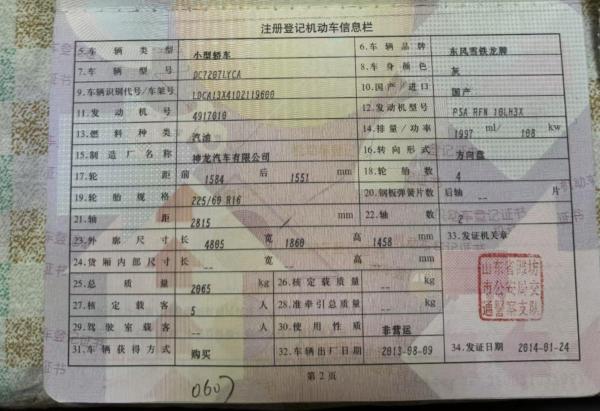 注册登记机动车信息栏
5.车辆类型 小型轿车 6.车辆品牌 东风雪铁龙牌
7.车辆型号 DC7207LYCA 8.车身颜色 灰
9.车辆识别代号/车架号 LDCA13X41D2119600 10.国产/进口 国产
11.发动机号 4917010 12.发动机型号 PSA RFN 10LH3X
13.燃料种类 汽油 14.排量/功率 1997 ml/ 108 kw
15.制造厂名称 神龙汽车有限公司 16.转向形式 方向盘
17.轮距 前 1584 后 1551 mm 18.轮胎数 4
19.轮胎规格 225/60 R16 20.钢板弹簧片数 后轴 -- 片
21.轴距 2815 mm 22.轴数 2
23.外廓尺寸 长 4805 宽 1860 高 1458 mm 33.发证机关章
24.货厢内部尺寸 长 -- 宽 -- 高 -- mm
25.总质量 2065 kg 26.核定载质量 -- kg
27.核定载客 5 人 28.准牵引总质量 -- kg
29.驾驶室载客 -- 人 30.使用性质 非营运
31.车辆获得方式 购买 32.车辆出厂日期 2013-08-09 34.发证日期 2014-01-24
山东省潍坊
市公安局交
通警察支队
第2页
0607